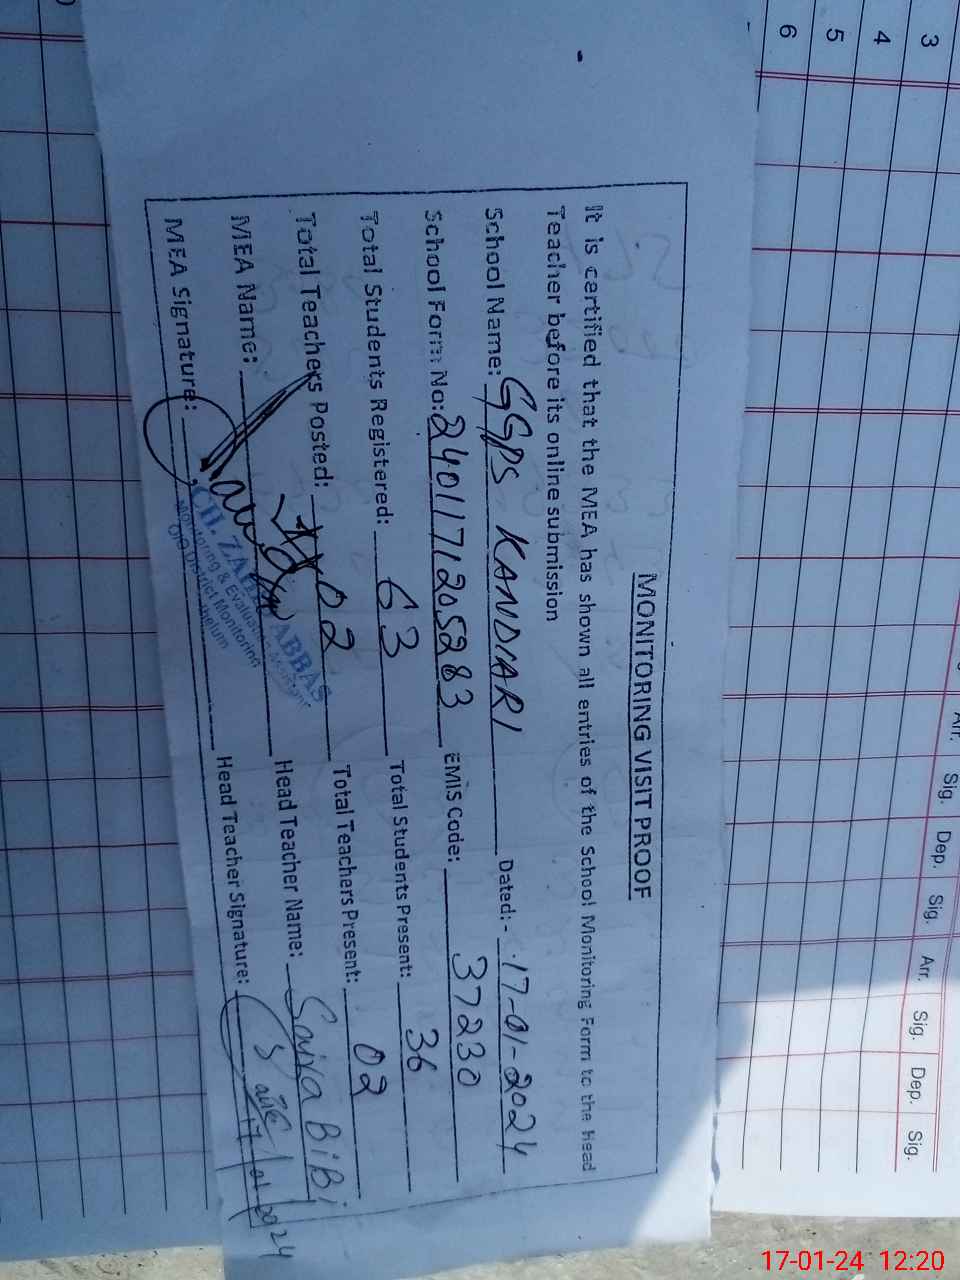 3
4
5
6
Arr. Sig. Dep. Sig. Arr. Sig. Dep. Sig.
MONITORING VISIT PROOF
It is certified that the MEA has shown all entries of the School Monitoring Form to the Head
Teacher before its online submission
School Name: GGPS KANDIARI Dated:- 17-01-2024
School Form No: 240117120S283 EMIS Code: 37230
Total Students Registered: 63 Total Students Present: 36
Total Teachers Posted: 02 Total Teachers Present: 02
MEA Name: Head Teacher Name: Saiya BiBi
MEA Signature: Head Teacher Signature:
17/01/2024
CH. ABBAS
Monitoring & Evaluation
O/O District Monitoring
Jhelum
17-01-24 12:20